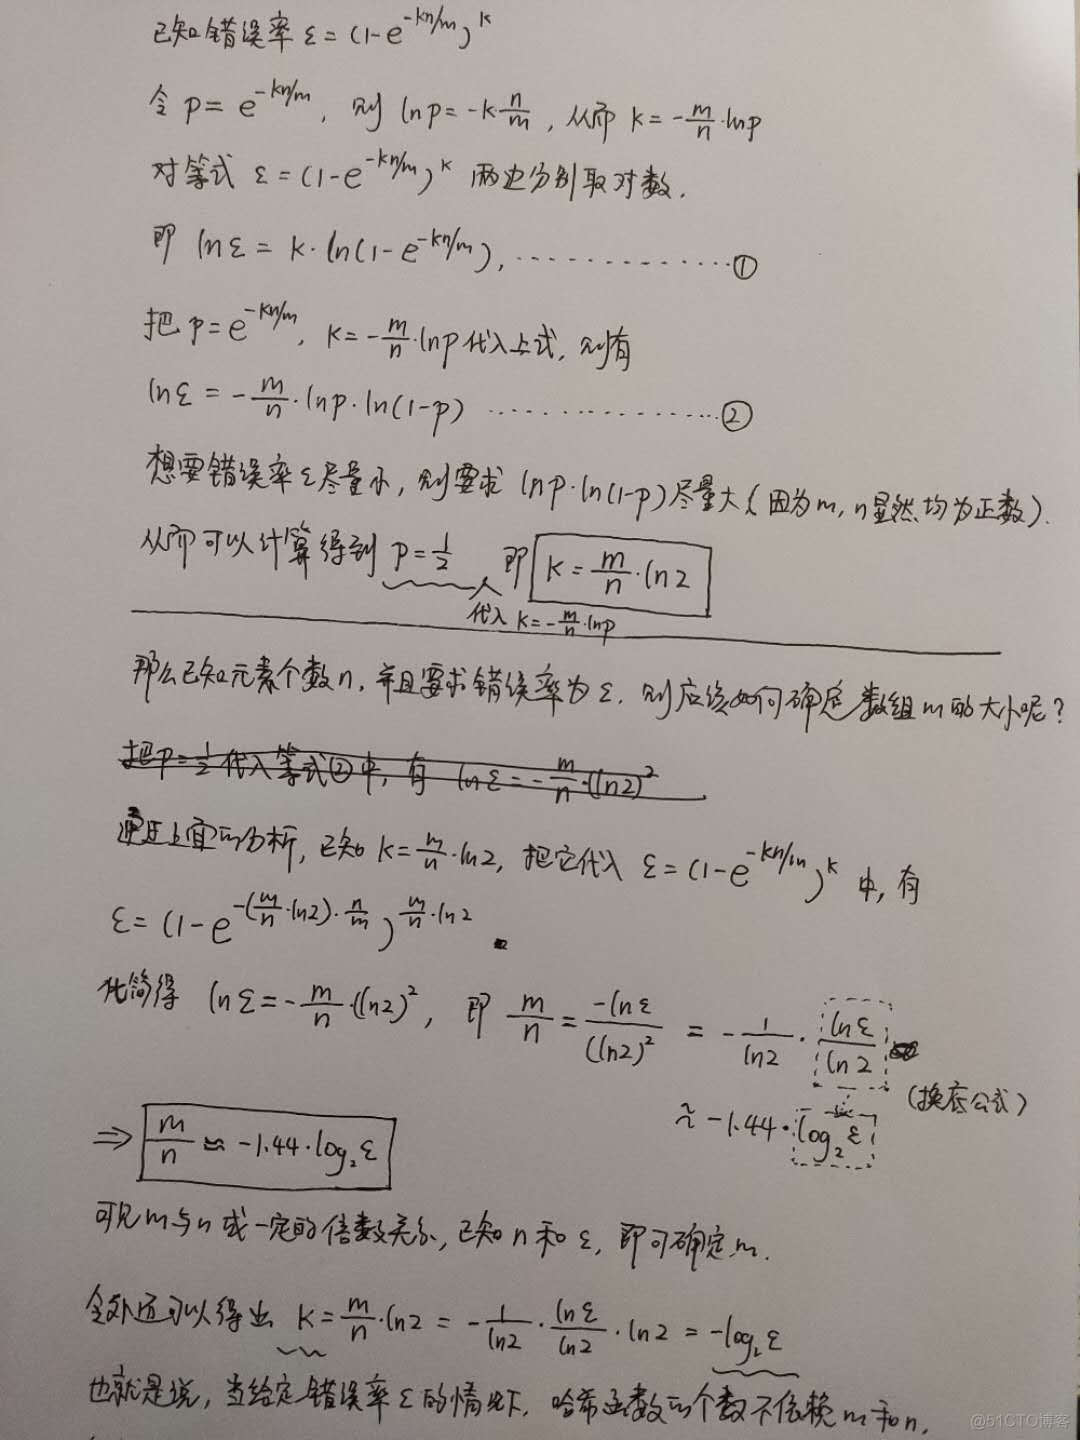 已知错误率 ε = (1-e^{-kn/m})^k
令 p = e^{-kn/m}, 则 ln p = -k·n/m, 从而 k = -m/n·ln p
对等式 ε = (1-e^{-kn/m})^k 两边分别取对数.
即 ln ε = k·ln(1-e^{-kn/m}), ①
把 p = e^{-kn/m}, k = -m/n·ln p 代入上式, 则有
ln ε = -m/n·ln p·ln(1-p) ②
想要错误率 ε 尽量小, 则要求 ln p·ln(1-p) 尽量大 (因为 m, n 显然均为正数).
从而可以计算得到 p = 1/2 即 k = m/n·ln 2
代入 k = -m/n·ln p
那么已知元素个数 n, 并且要求错误率为 ε, 则应该如何确定数组 m 的大小呢?
把 p = 1/2 代入等式②中, 有 ln ε = -m/n·(ln 2)^2
通过上面的分析, 已知 k = m/n·ln 2, 把它代入 ε = (1-e^{-kn/m})^k 中, 有
ε = (1-e^{-(m/n·ln 2)·n/m})^{m/n·ln 2}.
化简得 ln ε = -m/n·(ln 2)^2, 即 m/n = -ln ε/(ln 2)^2 = -1/ln 2·ln ε/ln 2
(换底公式)
≈ -1.44·log₂ε
⇒ m/n ≈ -1.44·log₂ε
可见 m 与 n 成一定的倍数关系, 已知 n 和 ε, 即可确定 m.
另外还可以得出 k = m/n·ln 2 = -1/ln 2·ln ε/ln 2·ln 2 = -log₂ε
也就是说, 当给定错误率 ε 的情况下, 哈希函数的个数不依赖 m 和 n.
@51CTO博客